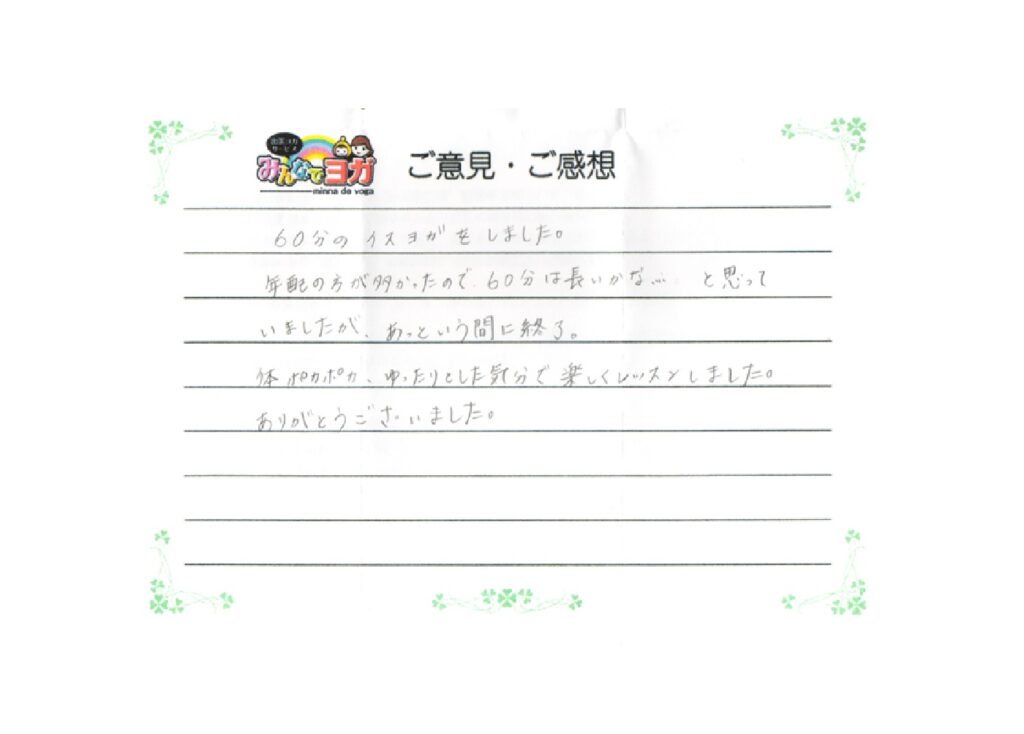 出張ヨガ
サービス
みんなでヨガ
minna de yoga
ご意見・ご感想
60分のイスヨガをしました。
年配の方が多かったので、60分は長いかな… と思って
いましたが、あっという間に終了。
体ポカポカ、ゆったりとした気分で楽しくレッスンしました。
ありがとうございました。